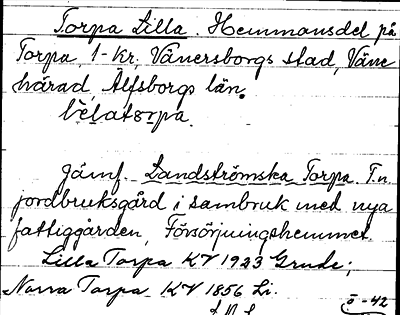 Torpa Lilla. Hemmansdel på
Torpa, 1-Kr, Vänersborgs stad, Väne
härad, Älfsborgs län.
l̀elatorpa.
Jämf. Landströmska Torpa. T.n
jordbruksgård i sambruk med nya
fattiggården, Försörjningshemmet
Lilla Torpa KV 1923 Grude;
Norra Torpa KV 1856 Li.
-42